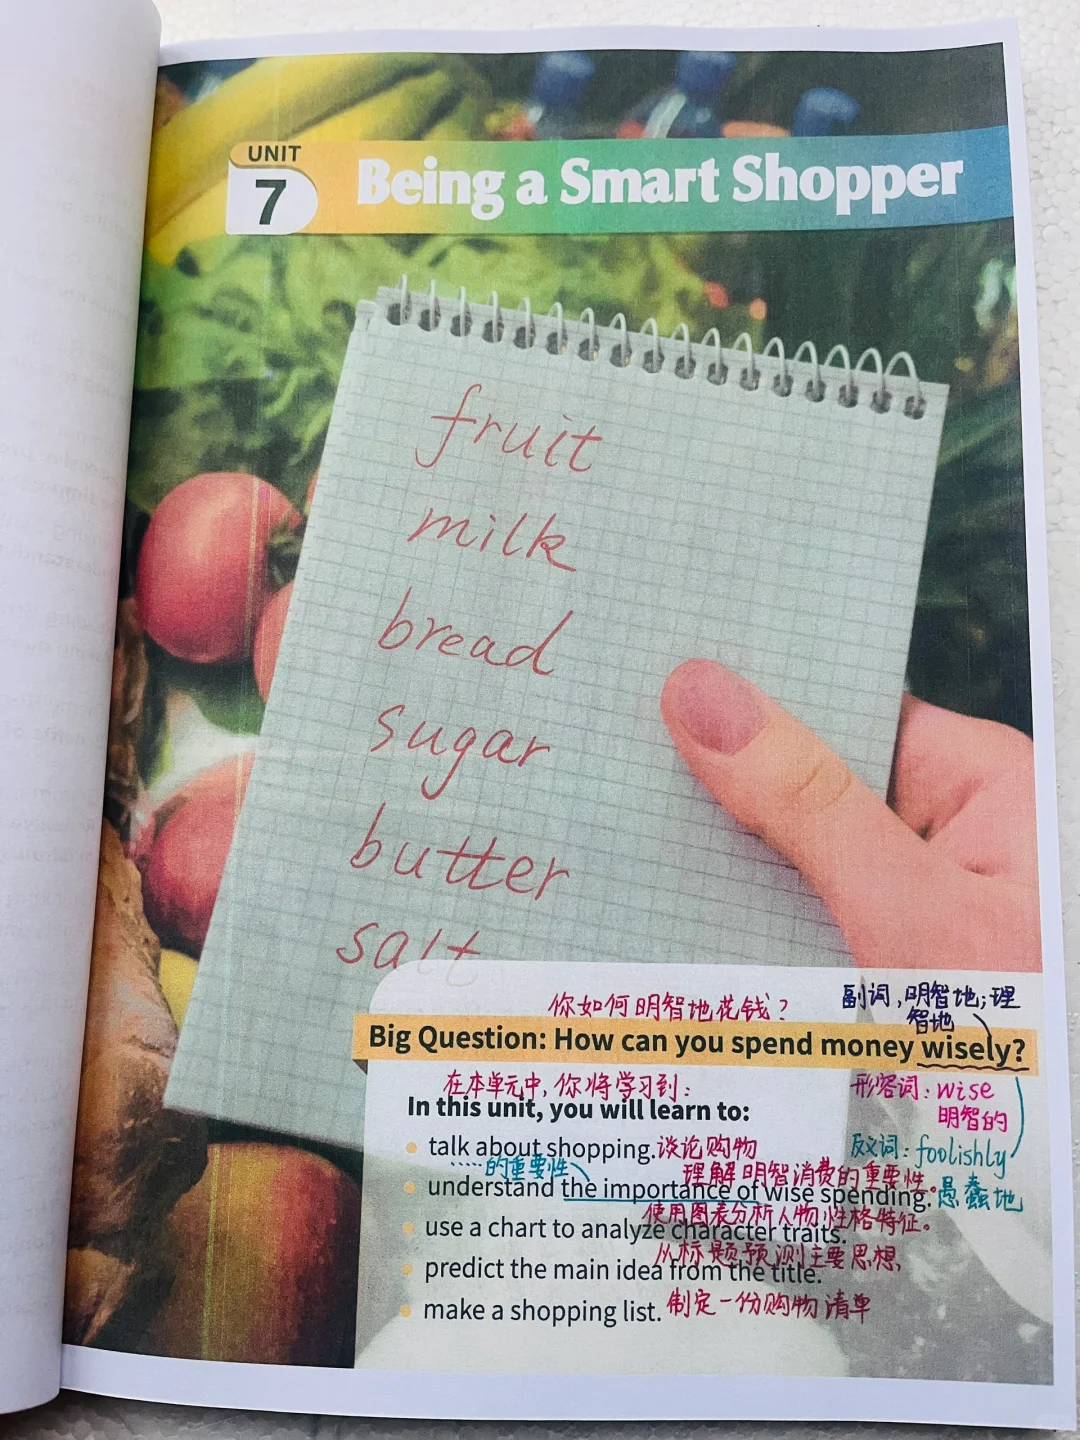 UNIT
7
Being a Smart Shopper
fruit
milk
bread
sugar
butter
salt
你如何明智地花钱？
副词，明智地；理
智地
Big Question: How can you spend money wisely?
在本单元中，你将学习到：
形容词：wise
明智的
In this unit, you will learn to:
反义词：foolishly
愚蠢地
talk about shopping. 谈论购物
……的重要性
理解明智消费的重要性。
understand the importance of wise spending.
使用图表分析人物性格特征。
use a chart to analyze character traits.
从标题预测主要思想、
predict the main idea from the title.
make a shopping list. 制定一份购物清单